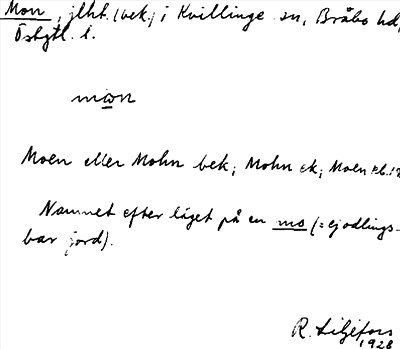 Mon, jlht. (bek.) i Kvillinge sn, Bråbo hd,
Östgtl. l.
mɷn
Moen eller Mohn bek; Mohn ek; Moen
Namnet efter läget på en mo (= ej odlings-
bar jord).
R. Liljefors
1928